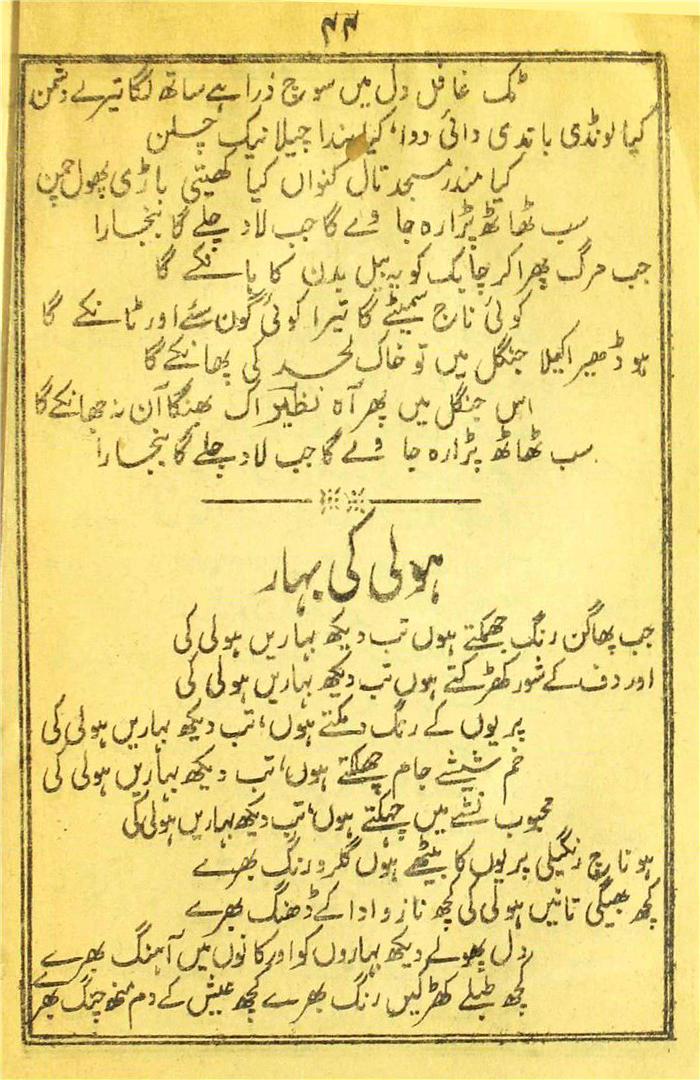 ۴۴
ٹک غافل دل میں سوچ ذرا ہے ساتھ لگا تیرے دشمن
کیا لونڈی باندی دائی ددا، کیا بندا چیلا نیک چلن
کیا مندر مسجد تال کنواں کیا کھیتی باڑی پھول چمن
سب ٹھاٹھ پڑا رہ جاوے گا جب لاد چلے گا بنجارا
جب مرگ پھرا کر چابک کو یہ بیل بدن کا ہانکے گا
کوئی ناج سمیٹے گا تیرا کوئی گون سئے اور ٹانکے گا
ہو ڈھیر اکیلا جنگل میں تو خاک لحد کی پھانکے گا
اس جنگل میں پھر آہ نظیرؔ اک بھنگا آن نہ جھانکے گا
سب ٹھاٹھ پڑا رہ جاوے گا جب لاد چلے گا بنجارا
ہولی کی بہار
جب پھاگن رنگ جھمکتے ہوں تب دیکھ بہاریں ہولی کی
اور دف کے شور کھڑکتے ہوں تب دیکھ بہاریں ہولی کی
پریوں کے رنگ دمکتے ہوں، تب دیکھ بہاریں ہولی کی
خم شیشے جام چھلکتے ہوں، تب دیکھ بہاریں ہولی کی
محبوب نشے میں چھکتے ہوں، تب دیکھ بہاریں ہولی کی
ہو ناچ رنگیلی پریوں کا بیٹھے ہوں گلرو رنگ بھرے
کچھ بھیگی تانیں ہولی کی کچھ ناز و ادا کے ڈھنگ بھرے
دل پھولے دیکھ بہاروں کو اور کانوں میں آہنگ بھرے
کچھ طبلے کھڑکیں رنگ بھرے کچھ عیش کے دم منھ چنگ بھرے